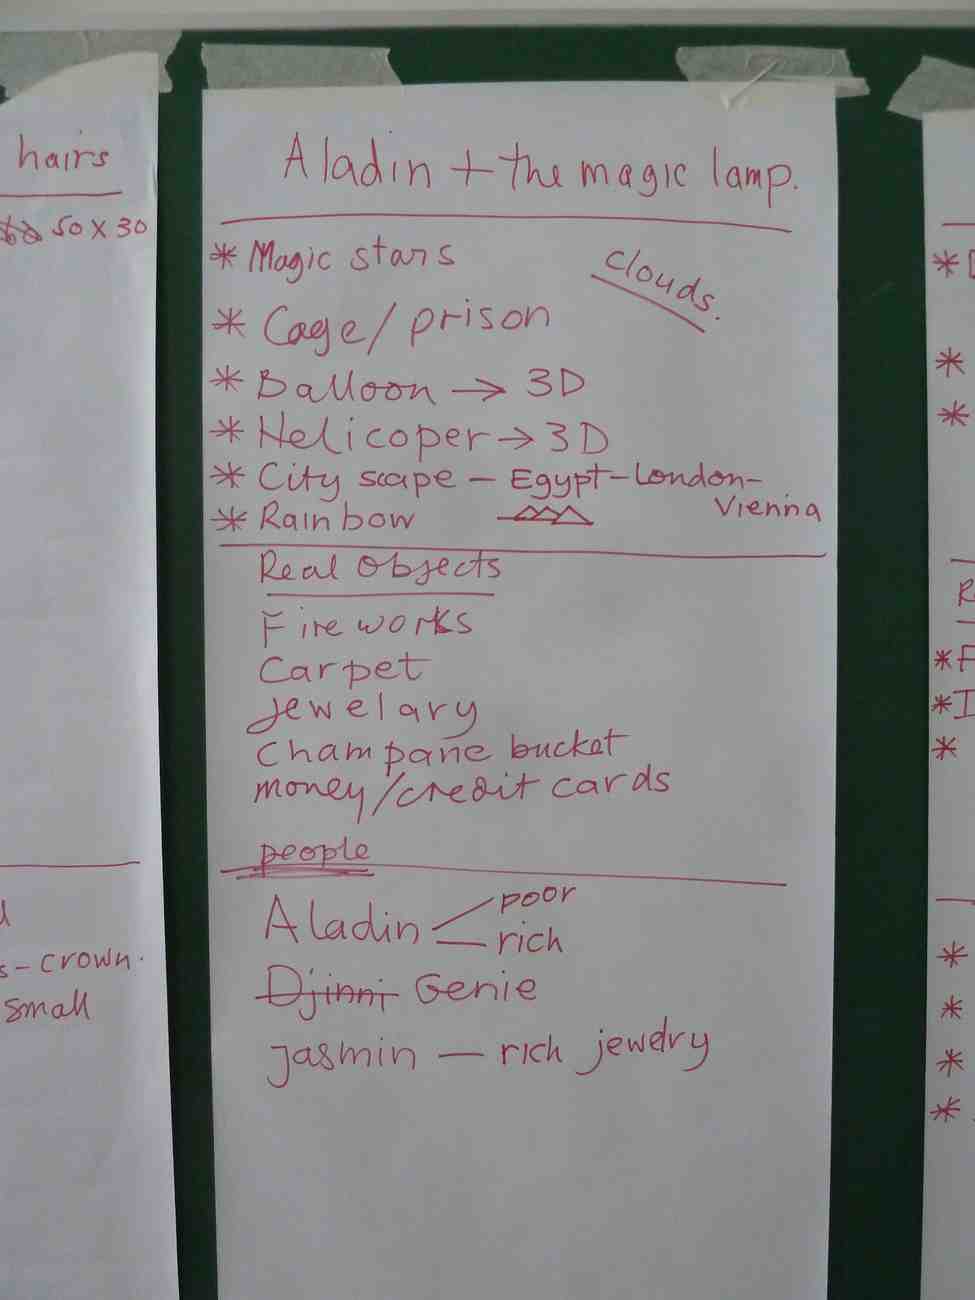 hairs
50 x 30
s - crown.
small
Aladin + the magic lamp.
* Magic stars
clouds.
* Cage/prison
* Balloon → 3D
* Helicoper → 3D
* City scape - Egypt - London -
Vienna
* Rainbow
Real Objects
Fireworks
Carpet
jewelary
Champane bucket
money/credit cards
people
Aladin
poor
rich
Djinni Genie
Jasmin — rich jewelry